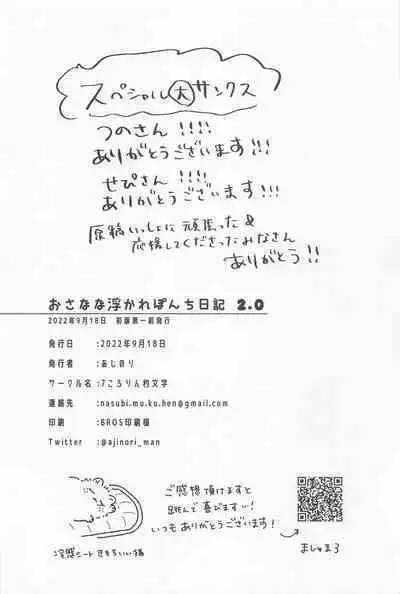 スペシャル大サンクス
つのさん!!!!
ありがとうございます!!!
せぴさん!!!!
ありがとうございます!!!
原稿いっしょに頑張った&
応援してくださったみなさん
ありがとう!!
おさなな浮かれぽんち日記 2.0
2022年9月18日 初版第一刷発行
発行日 :2022年9月18日
発行者 :あじのり
サークル名:7ころりん約文字
連絡先 :nasubi.mu.ku.hen@gmail.com
印刷 :BROS印刷様
Twitter :@ajinori_man
ご感想頂けますと
跳んで喜びます…!
いつもありがとうございます!
冷感シートきもちいい猫
ましゅまろ